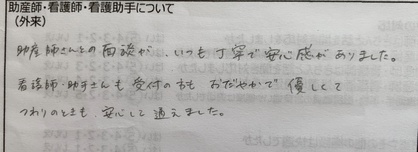 助産師・看護師・看護助手について
(外来)
助産師さんとの面談が、いつも丁寧で安心感がありました。
看護師・助手さんも受付の方もおだやかで優しくて
つわりのときも、安心して通えました。